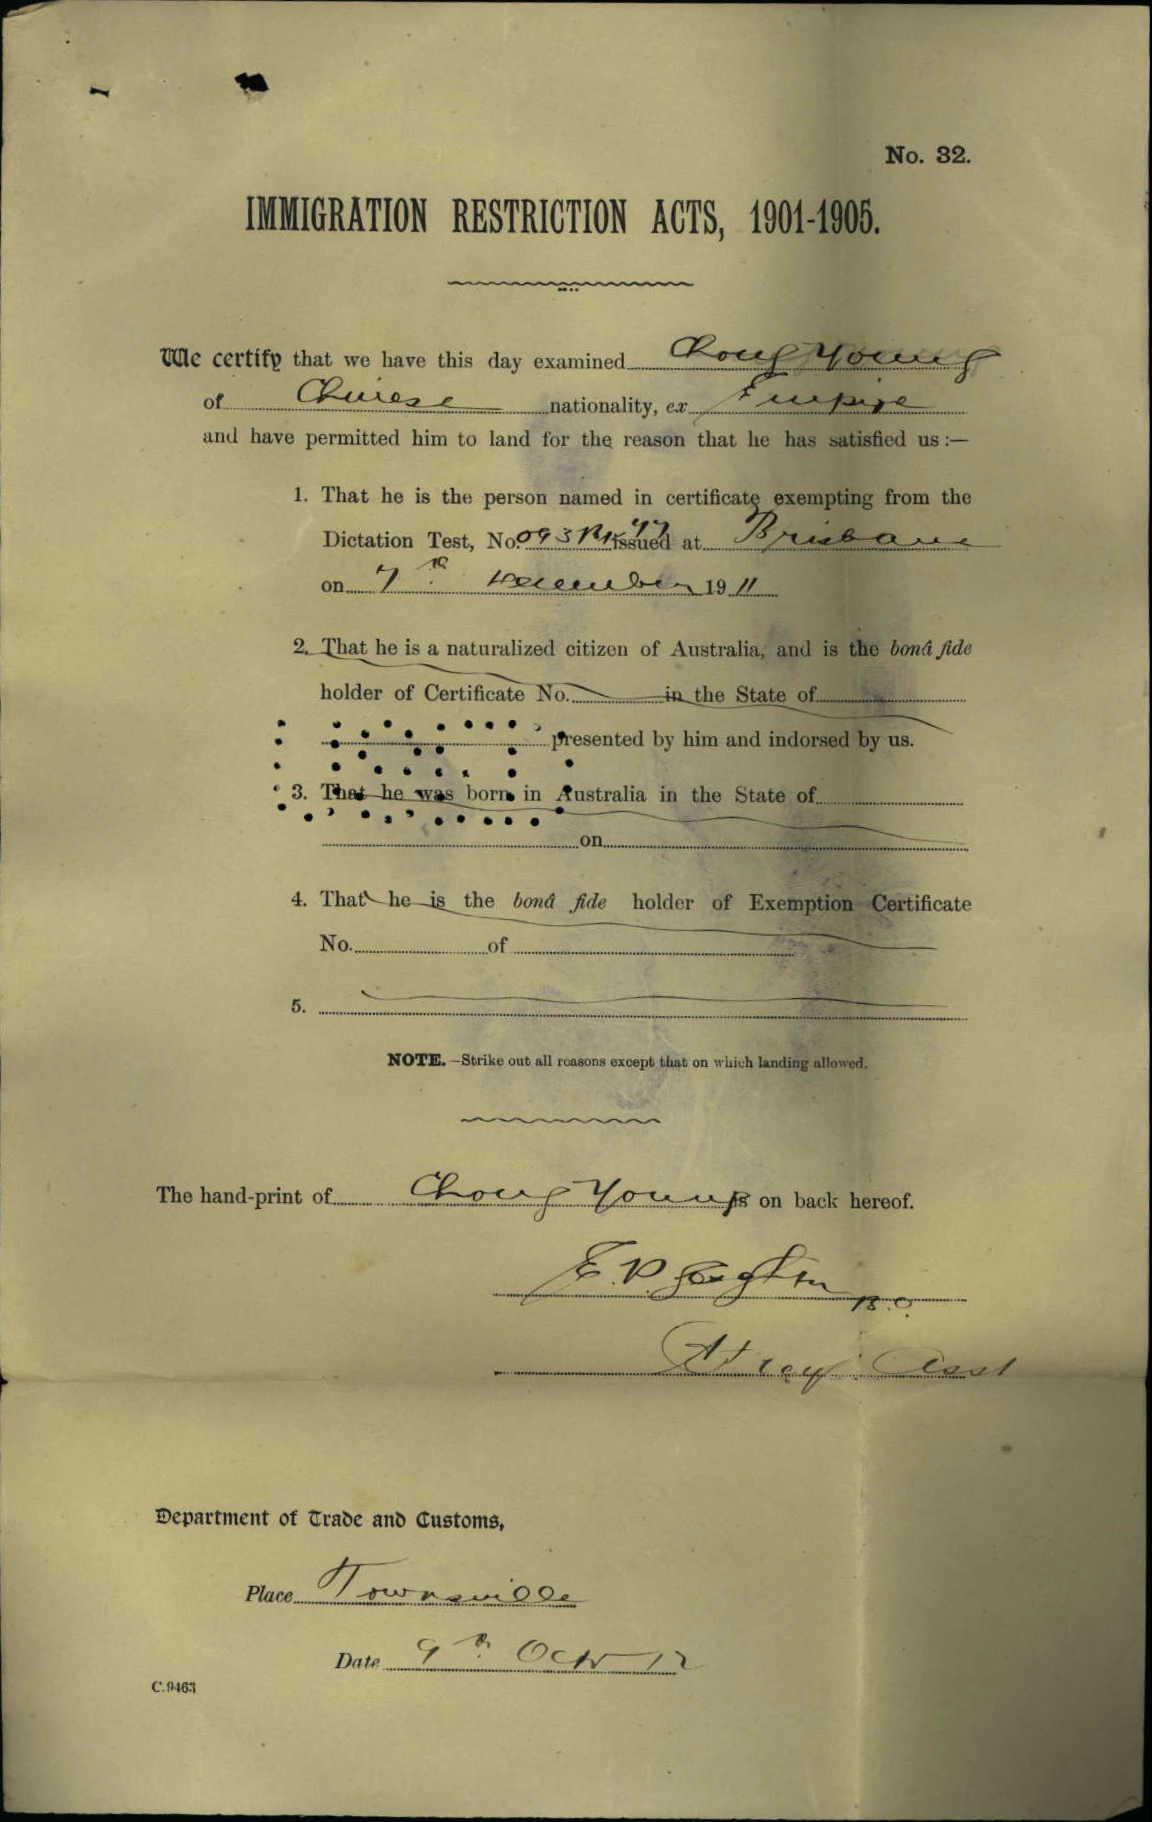 No. 32.
IMMIGRATION RESTRICTION ACTS, 1901-1905.
We certify that we have this day examined Chong Young
of Chinese nationality, ex Empire
and have permitted him to land for the reason that he has satisfied us :—
1. That he is the person named in certificate exempting from the
Dictation Test, No. issued at Brisbane
on 7th December 1911
2. That he is a naturalized citizen of Australia, and is the bonâ fide
holder of Certificate No. in the State of
presented by him and indorsed by us.
3. That he was born in Australia in the State of
on
4. That he is the bonâ fide holder of Exemption Certificate
No. of
5.
NOTE.—Strike out all reasons except that on which landing allowed.
The hand-print of Chong Young is on back hereof.
E. P.
Asst
Department of Trade and Customs,
Place Townsville
Date 9th Octr 12
C.9463